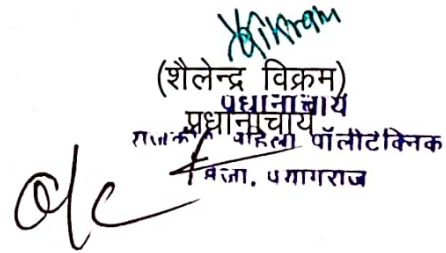 Vikram
(शैलेन्द्र विक्रम)
प्रधानाचार्य
प्रधानाचार्य
राजकीय महिला पॉलीटेक्निक
प्रयागराज
o/c